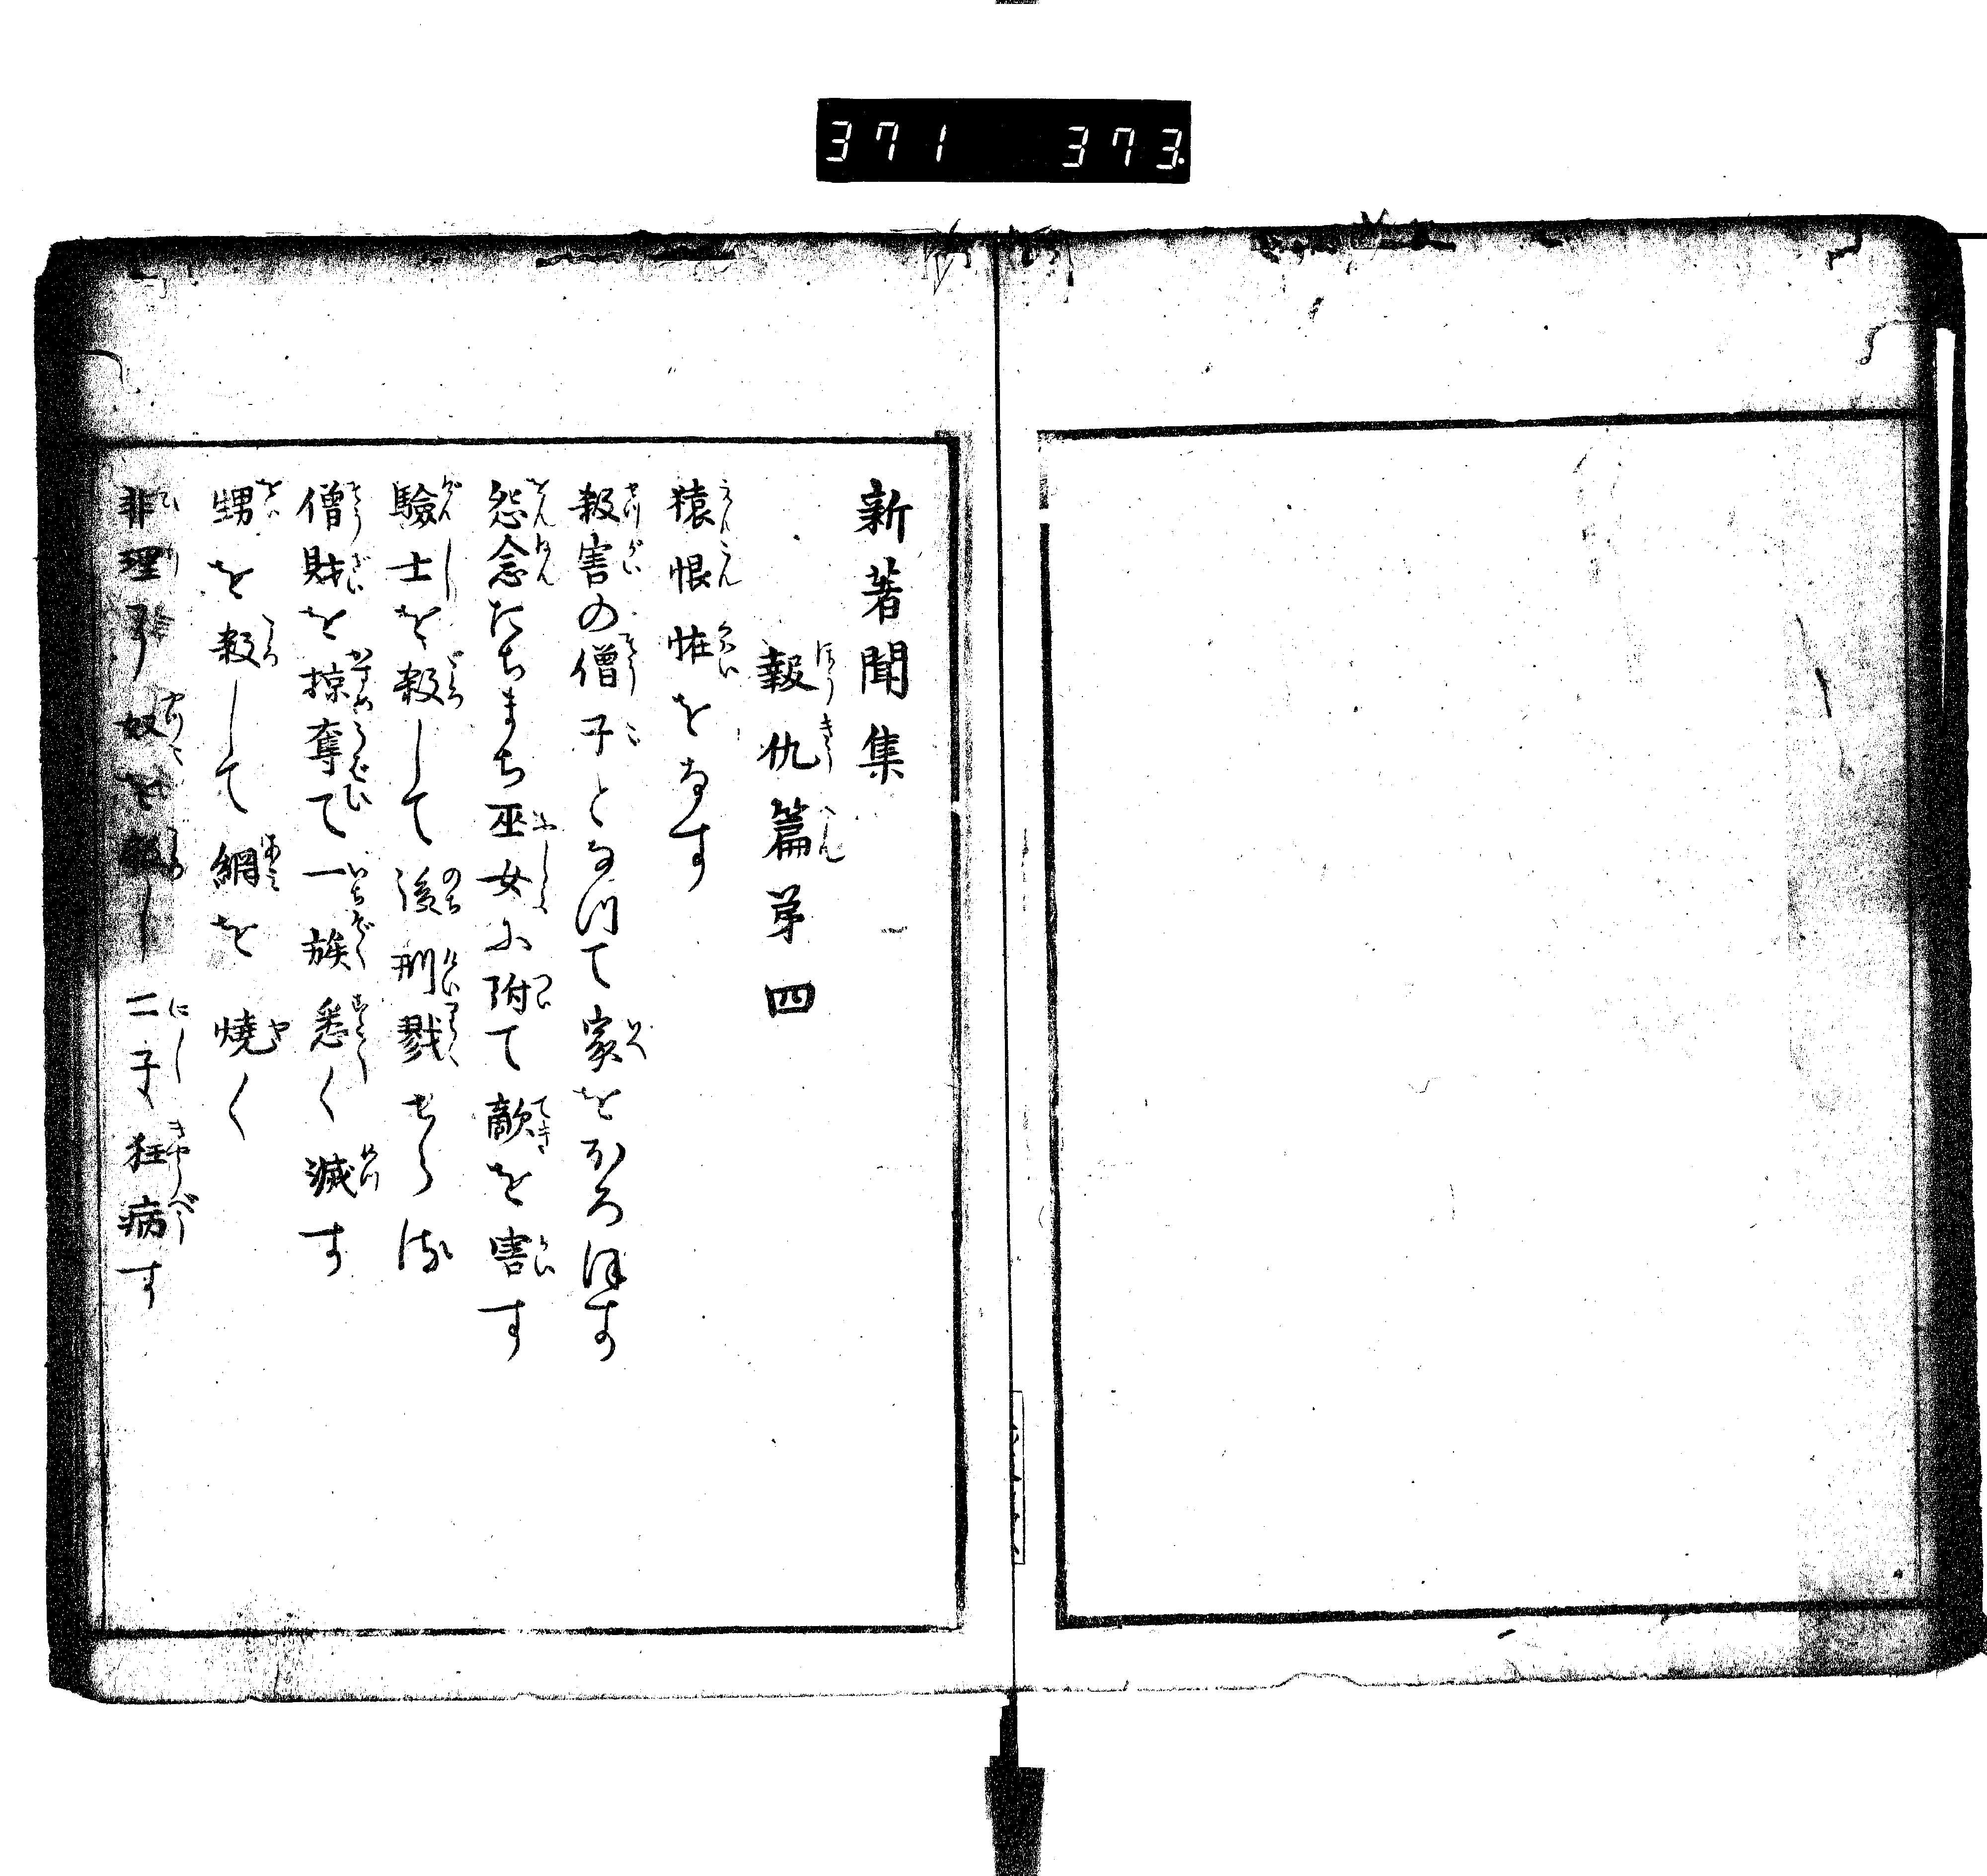 371 373
新著聞集
報仇篇第四
猿恨怪をなす
殺害の僧子となつて家をほろぼす
怨念たちまち巫女に附て敵を害す
驗士を殺して後刑戮せらる
僧財を掠奪て一族悉く滅す
甥を殺して網を燒く
非理に奴を殺し二子狂病す